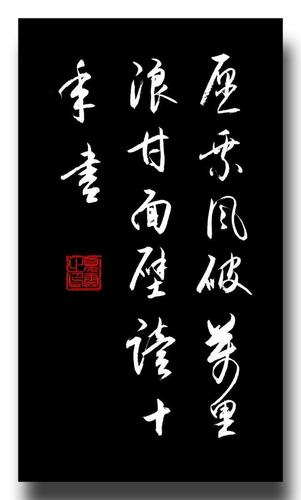 愿乘风破萬里
浪甘面壁读十
年書